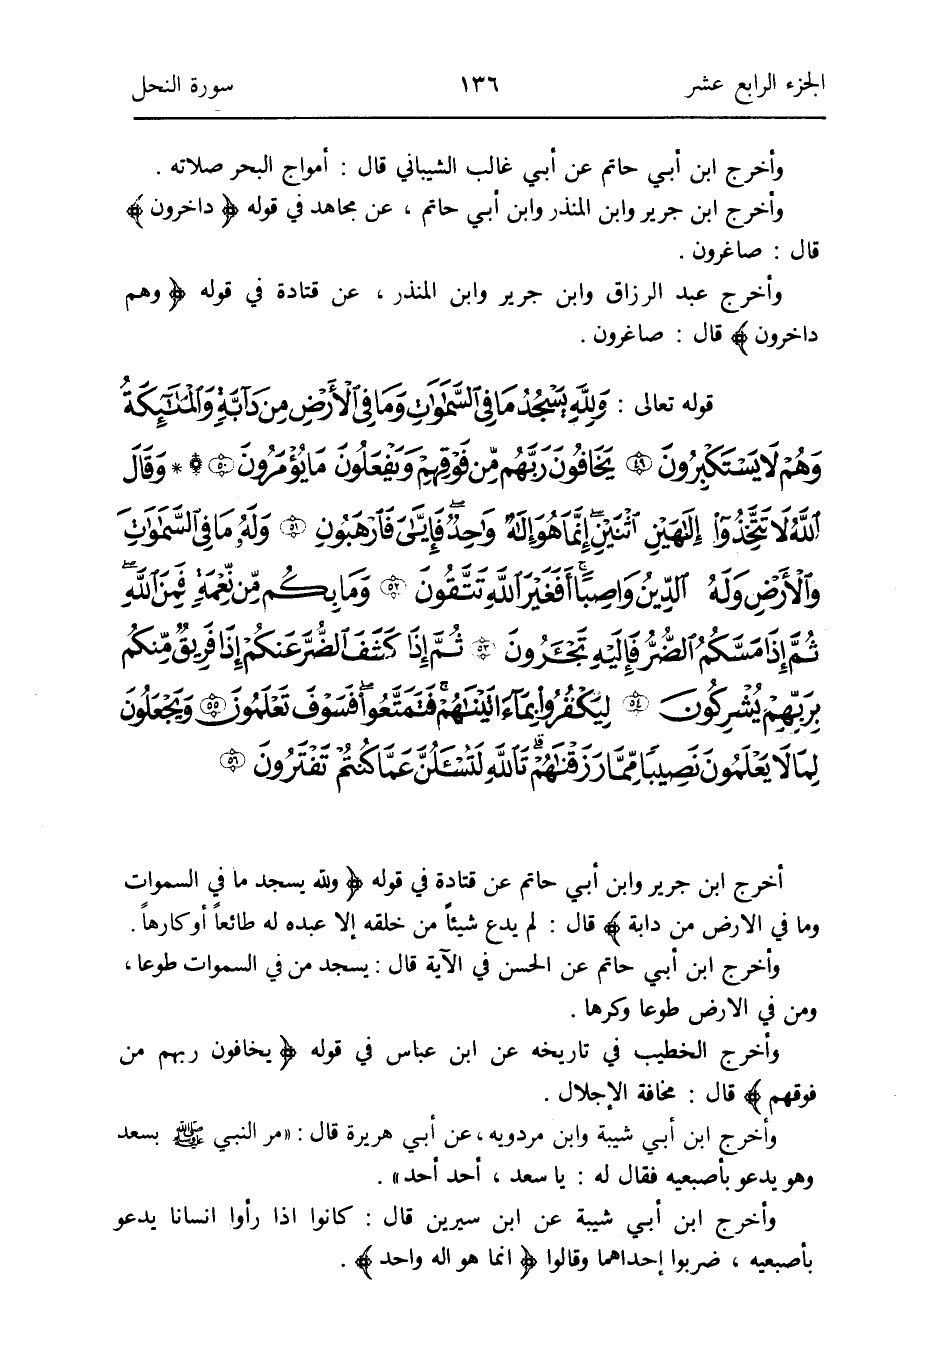 الجزء الرابع عشر ١٣٦ سورة النحل
وأخرج ابن أبي حاتم عن أبي غالب الشيباني قال : أمواج البحر صلاته .
وأخرج ابن جرير وابن المنذر وابن أبي حاتم ، عن مجاهد في قوله ﴿ داخرون ﴾
قال : صاغرون .
وأخرج عبد الرزاق وابن جرير وابن المنذر ، عن قتادة في قوله ﴿ وهم
داخرون ﴾ قال : صاغرون .
قوله تعالى : وَلِلَّهِ يَسْجُدُ مَا فِي السَّمَٰوَٰتِ وَمَا فِي الْأَرْضِ مِن دَآبَّةٍ وَالْمَلَٰٓئِكَةُ
وَهُمْ لَا يَسْتَكْبِرُونَ ٤٩ يَخَافُونَ رَبَّهُم مِّن فَوْقِهِمْ وَيَفْعَلُونَ مَا يُؤْمَرُونَ ۩ ٥٠ * وَقَالَ
اللَّهُ لَا تَتَّخِذُوٓا۟ إِلَٰهَيْنِ اثْنَيْنِ ۖ إِنَّمَا هُوَ إِلَٰهٌ وَٰحِدٌ ۖ فَإِيَّٰيَ فَارْهَبُونِ ٥١ وَلَهُۥ مَا فِي السَّمَٰوَٰتِ
وَالْأَرْضِ وَلَهُ الدِّينُ وَاصِبًا ۚ أَفَغَيْرَ اللَّهِ تَتَّقُونَ ٥٢ وَمَا بِكُم مِّن نِّعْمَةٍ فَمِنَ اللَّهِ ۖ
ثُمَّ إِذَا مَسَّكُمُ الضُّرُّ فَإِلَيْهِ تَجْـَٔرُونَ ٥٣ ثُمَّ إِذَا كَشَفَ الضُّرَّ عَنكُمْ إِذَا فَرِيقٌ مِّنكُم
بِرَبِّهِمْ يُشْرِكُونَ ٥٤ لِيَكْفُرُوا۟ بِمَآ ءَاتَيْنَٰهُمْ ۚ فَتَمَتَّعُوا۟ ۖ فَسَوْفَ تَعْلَمُونَ ٥٥ وَيَجْعَلُونَ
لِمَا لَا يَعْلَمُونَ نَصِيبًا مِّمَّا رَزَقْنَٰهُمْ ۗ تَاللَّهِ لَتُسْـَٔلُنَّ عَمَّا كُنتُمْ تَفْتَرُونَ ٥٦
أخرج ابن جرير وابن أبي حاتم عن قتادة في قوله ﴿ ولله يسجد ما في السموات
وما في الارض من دابة ﴾ قال : لم يدع شيئاً من خلقه إلا عبده له طائعاً أو كارهاً .
وأخرج ابن أبي حاتم عن الحسن في الآية قال : يسجد من في السموات طوعا ،
ومن في الارض طوعا وكرها .
وأخرج الخطيب في تاريخه عن ابن عباس في قوله ﴿ يخافون ربهم من
فوقهم ﴾ قال : مخافة الإجلال .
وأخرج ابن أبي شيبة وابن مردويه ، عن أبي هريرة قال : «مر النبي ﷺ بسعد
وهو يدعو بأصبعيه فقال له : يا سعد ، أحد أحد» .
وأخرج ابن أبي شيبة عن ابن سيرين قال : كانوا اذا رأوا انسانا يدعو
بأصبعيه ، ضربوا إحداهما وقالوا ﴿ انما هو اله واحد ﴾ .